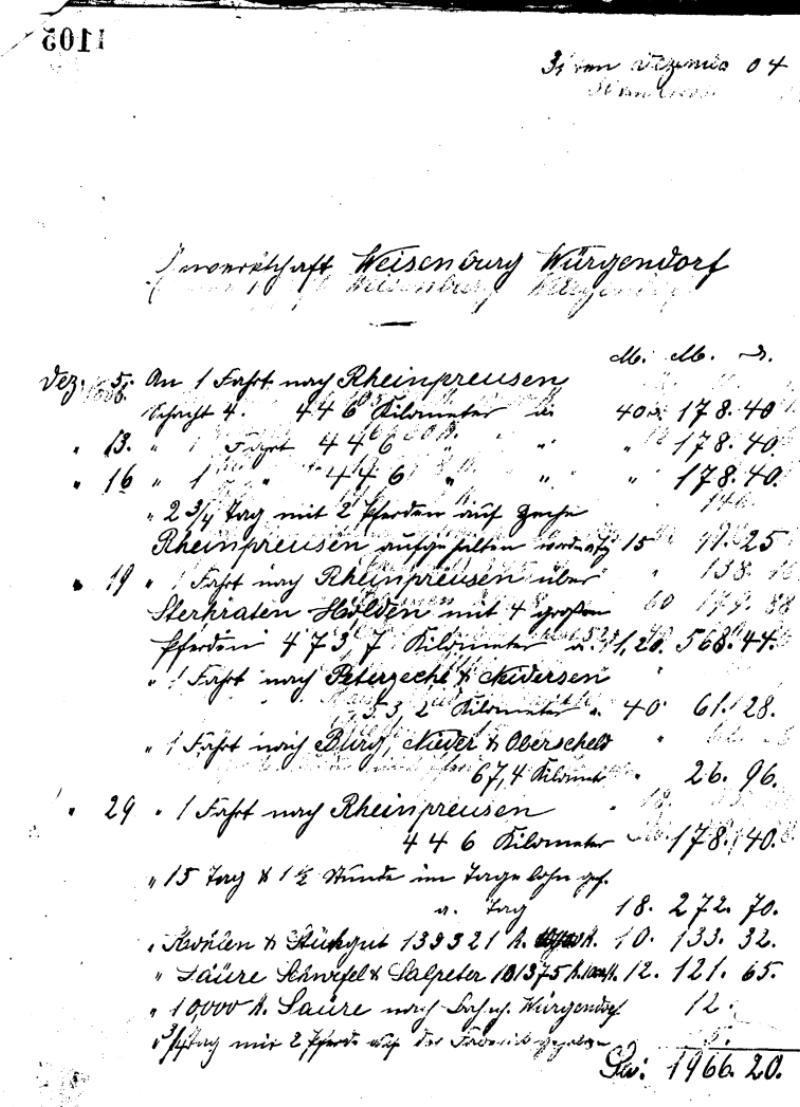 1105
31 ten Dezember 04
Gewerkschaft Weisenburg Würgendorf
M. M. ₰.
Dez. 5. An 1 Fahrt nach Rheinpreusen
Schacht 4. 446 Kilometer a. 40 ₰. 178. 40
" 13. " 1 Fahrt 446 " " " 178. 40.
" 16 " 1 " 446 " " " 178. 40.
" 2 3/4 Tag mit 2 Pferden auf Zeche
Rheinpreusen aufgehalten worden 15 41. 25
" 19 " 1 Fahrt nach Rheinpreusen über
Sterkraten Holden mit 4 großen
Pferden 473,7 Kilometer a. 1,20. 568. 44.
" 1 Fahrt nach Peterzeche &
53,2 Kilometer a. 40 61. 28.
" 1 Fahrt nach Burg, Nieder & Oberscheld
67,4 Kilomet " 26. 96.
" 29 " 1 Fahrt nach Rheinpreusen
446 Kilometer 178. 40.
" 15 Tag & 1 1/2 Stunde im Tagelohn gef.
a. Tag 18. 272. 70.
" Kohlen & Stückgut 133321 K. 10. 133. 32.
" Säure Schwefel & Salpeter 101375 K. 12. 121. 65.
" 10,000 K. Säure nach Würgendorf 12.
" 3/4 Tag mit 2 Pferde auf der
Sa: 1966. 20.